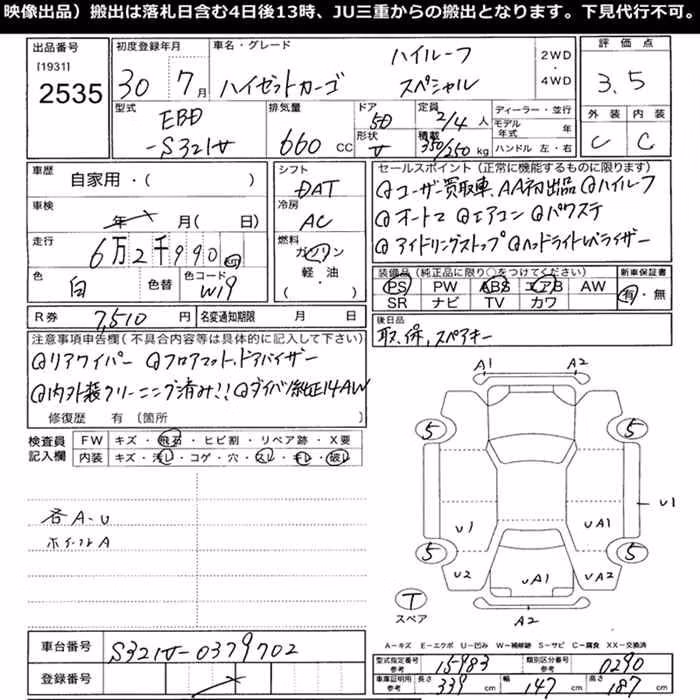 映像出品）搬出は落札日含む4日後13時、JU三重からの搬出となります。下見代行不可。
出品番号 初度登録年月 車名・グレード ハイルーフ 2WD 評価点
[1931] ・
2535 30年7月 ハイゼットカーゴ スペシャル 4WD 3.5
型式 排気量 ドア 定員 ディーラー・並行 外装 内装
EBD 5D 2/4人 モデル年式 年
-S321V 660cc 形状 V 積載 350/250kg ハンドル 左・右 C
車歴 自家用・( ) シフト セールスポイント(正常に機能するものに限ります)
DAT ◎ユーザー買取車、AA初出品 ◎ハイルーフ
車検 年 月(日) 冷房 ◎オートマ ◎エアコン ◎パワステ
AC ◎アイドリングストップ ◎ヘッドライトレベライザー
走行 6万2千990 燃料 ガソリン
軽油 装備品(純正品に限り○をつけてください) 新車保証書
色 白 色替 色コード W19 ・( ) PS PW ABS エアB AW 有・無
SR ナビ TV カワ
R券 7,510円 名変通知期限 月 日 後日品
注意事項申告欄(不具合内容等は具体的に記入して下さい) 取、保、スペアキー
◎リアワイパー ◎フロアマット、ドアバイザー
◎内外装クリーニング済み!! ◎ダイハツ純正14AW
修復歴 有(箇所 )
検査員 FW キズ・飛石・ヒビ割・リペア跡・X要
記入欄 内装 キズ・汚レ・コゲ・穴・スレ・キレ・破レ
A1 A2
5 5
各A-U U1
ポイントA U1 UA1
5 5
U2 UA1 UA2
T
スペア A2
A-キズ E-エクボ U-凹み W-補修跡 S-サビ C-腐食 XX-交換済
車台番号 S321V-0379702
型式指定番号 参考 15983 類別区分番号 参考 0290
登録番号
車庫証明用 参考 長さ 339cm 幅 147cm 高さ 187cm